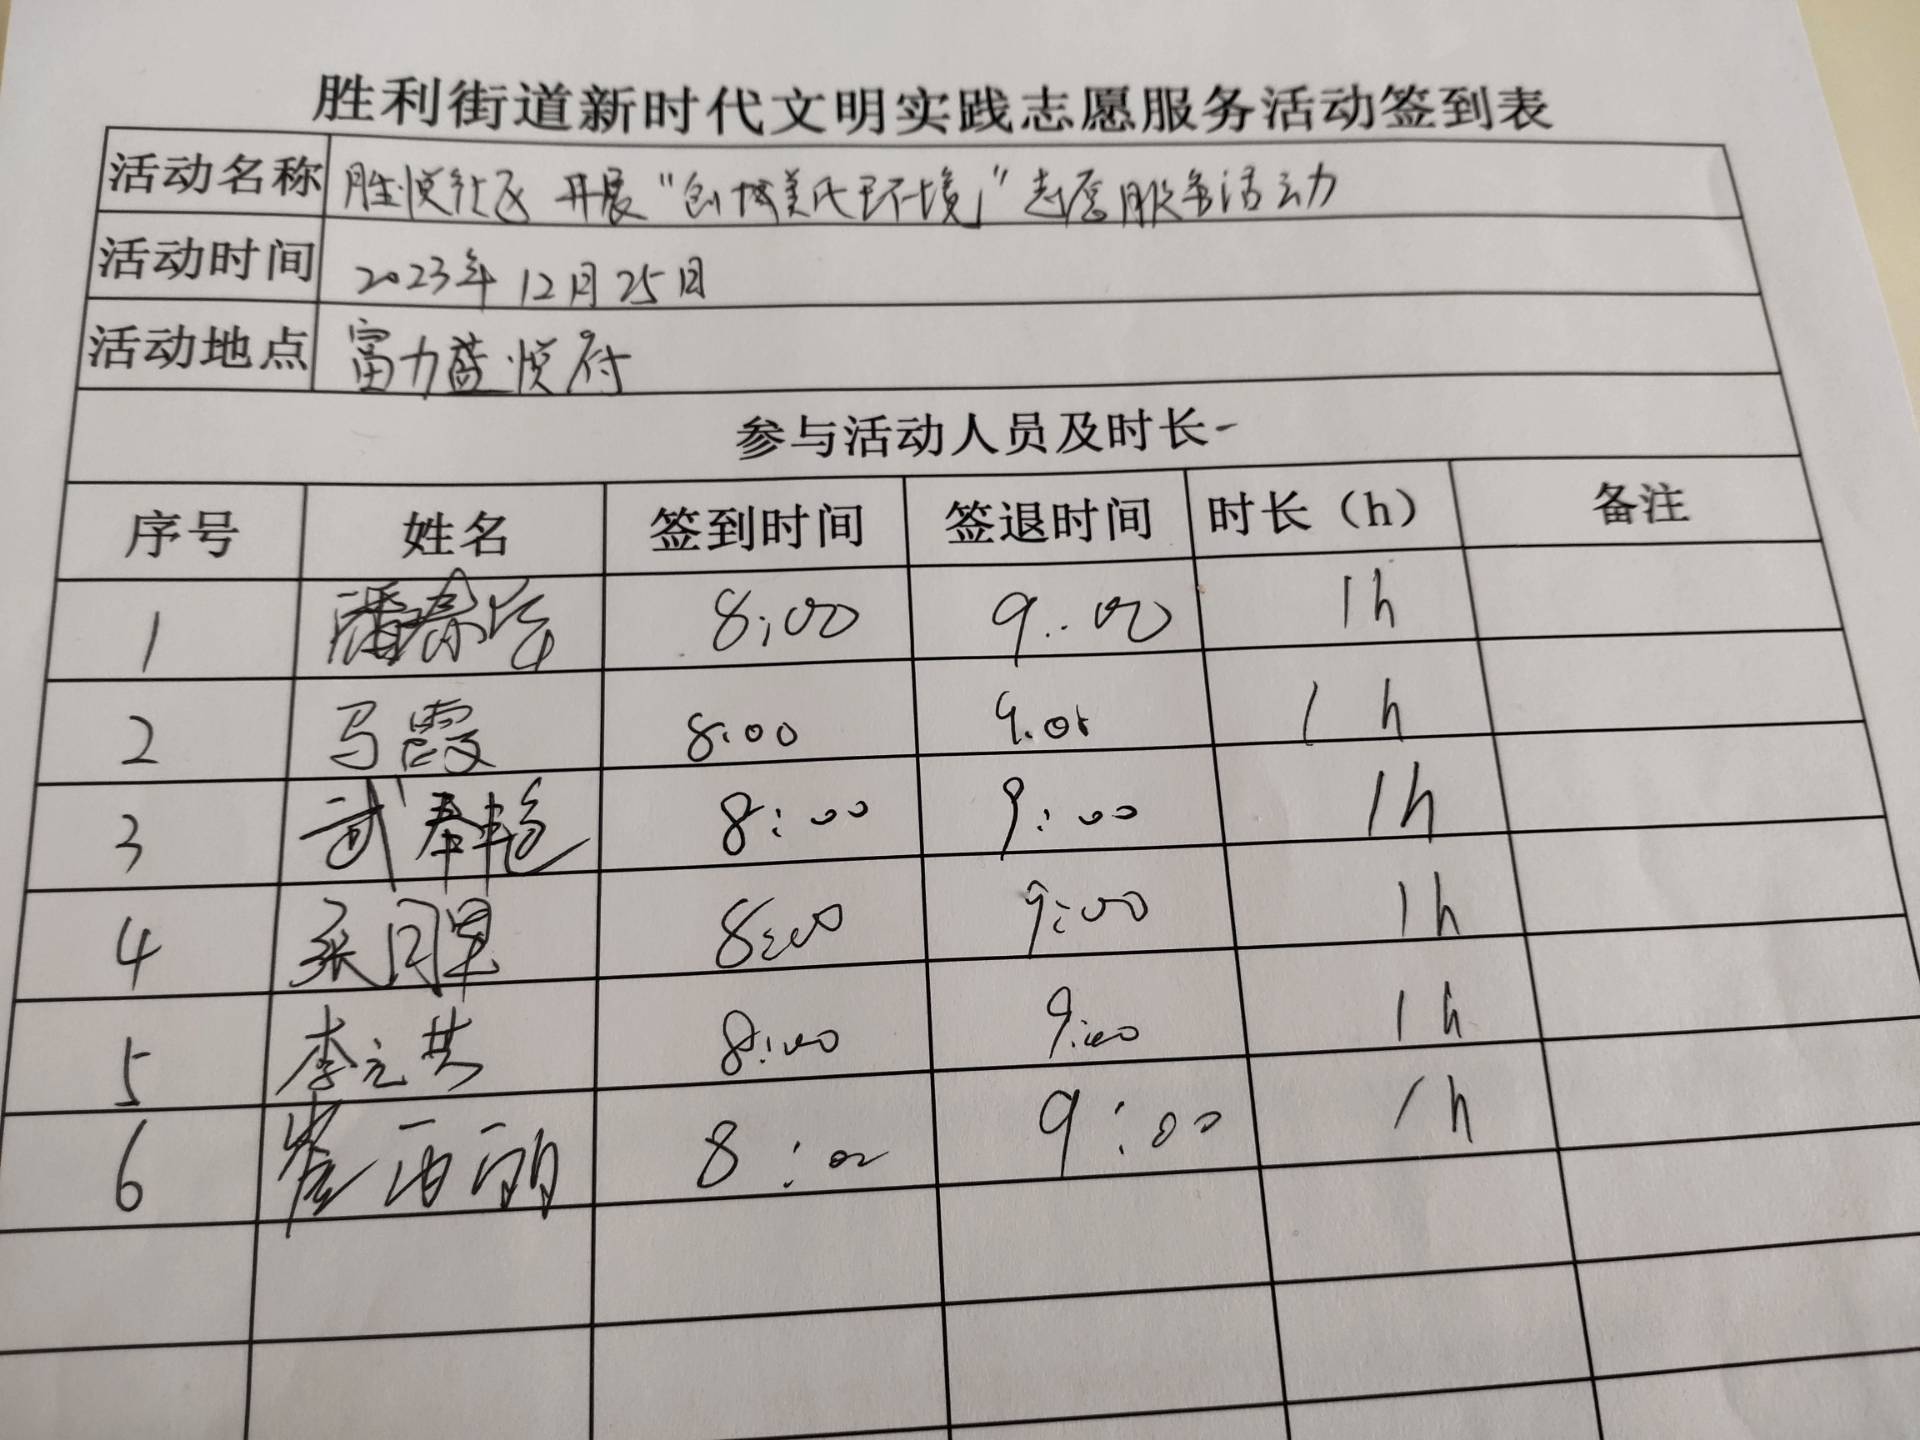 胜利街道新时代文明实践志愿服务活动签到表
活动名称 胜悦社区 开展“创城美化环境”志愿服务活动
活动时间 2023年12月25日
活动地点 富力蓝悦府
参与活动人员及时长
序号 姓名 签到时间 签退时间 时长(h) 备注
1 8:00 9:00 1h
2 马霞 8:00 9:00 1h
3 武春艳 8:00 9:00 1h
4 张 8:00 9:00 1h
5 李元共 8:00 9:00 1h
6 崔西丽 8:00 9:00 1h